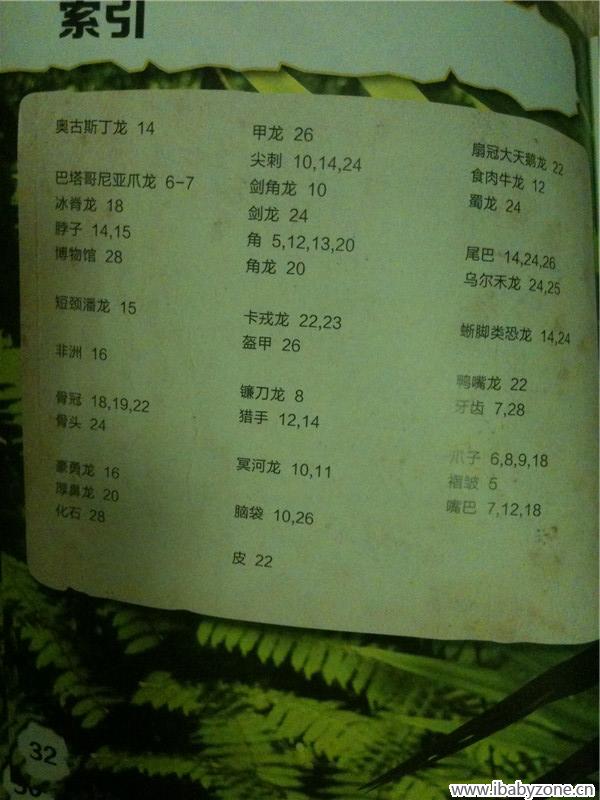 索引
奥古斯丁龙 14
巴塔哥尼亚爪龙 6-7
冰脊龙 18
脖子 14,15
博物馆 28
短颈潘龙 15
非洲 16
骨冠 18,19,22
骨头 24
豪勇龙 16
厚鼻龙 20
化石 28
甲龙 26
尖刺 10,14,24
剑角龙 10
剑龙 24
角 5,12,13,20
角龙 20
卡戎龙 22,23
盔甲 26
镰刀龙 8
猎手 12,14
冥河龙 10,11
脑袋 10,26
皮 22
扇冠大天鹅龙 22
食肉牛龙 12
蜀龙 24
尾巴 14,24,26
乌尔禾龙 24,25
蜥脚类恐龙 14,24
鸭嘴龙 22
牙齿 7,28
爪子 6,8,9,18
褶皱 5
嘴巴 7,12,18
32
www.ibabyzone.cn